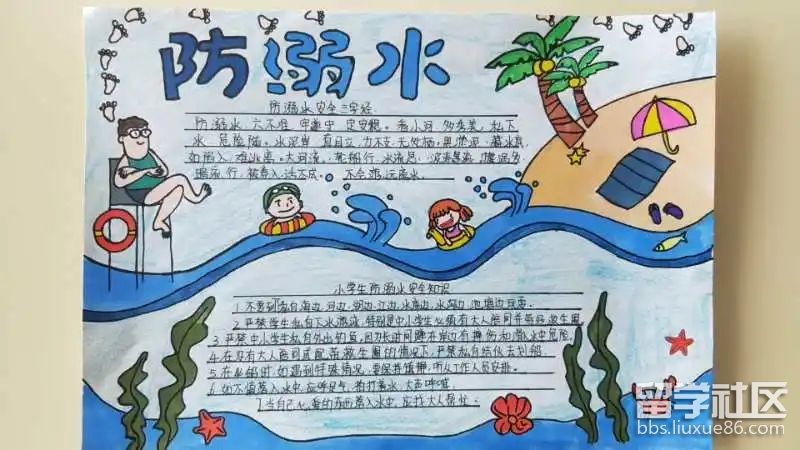 防溺水
防溺水安全三字经
防溺水 六不准 牢遵守 定安稳。看小河 多秀美 私下
水 危险随。水深浅 直自立 力不支 无依栖。
如陷入 难逃离。大河流 轮船行 水流急
被卷入 活不成。 不会乘 远离水
小学生防溺水安全知识
1. 不要到 海边、河边、湖边、江边、水库边、水沟边、池塘边玩耍。
2. 严禁学生私自下水游泳 特别是中小学生必须有大人陪同并带好救生圈
3. 严禁中小学生私自外出钓鱼,因为长时间蹲在岸边有 滑入水中危险
4. 在没有大人陪同或配带救生圈的情况下,严禁私自结伙去划船
5. 在坐船时,如遇到特殊情况,要保持镇静,听从工作人员安排。
6. 如不慎落入水中,应呼足气,拍打着水,大声呼喊。
7. 当自己心爱的东西落入水中,应找大人帮忙。
留学社区
bbs.liuxue86.com